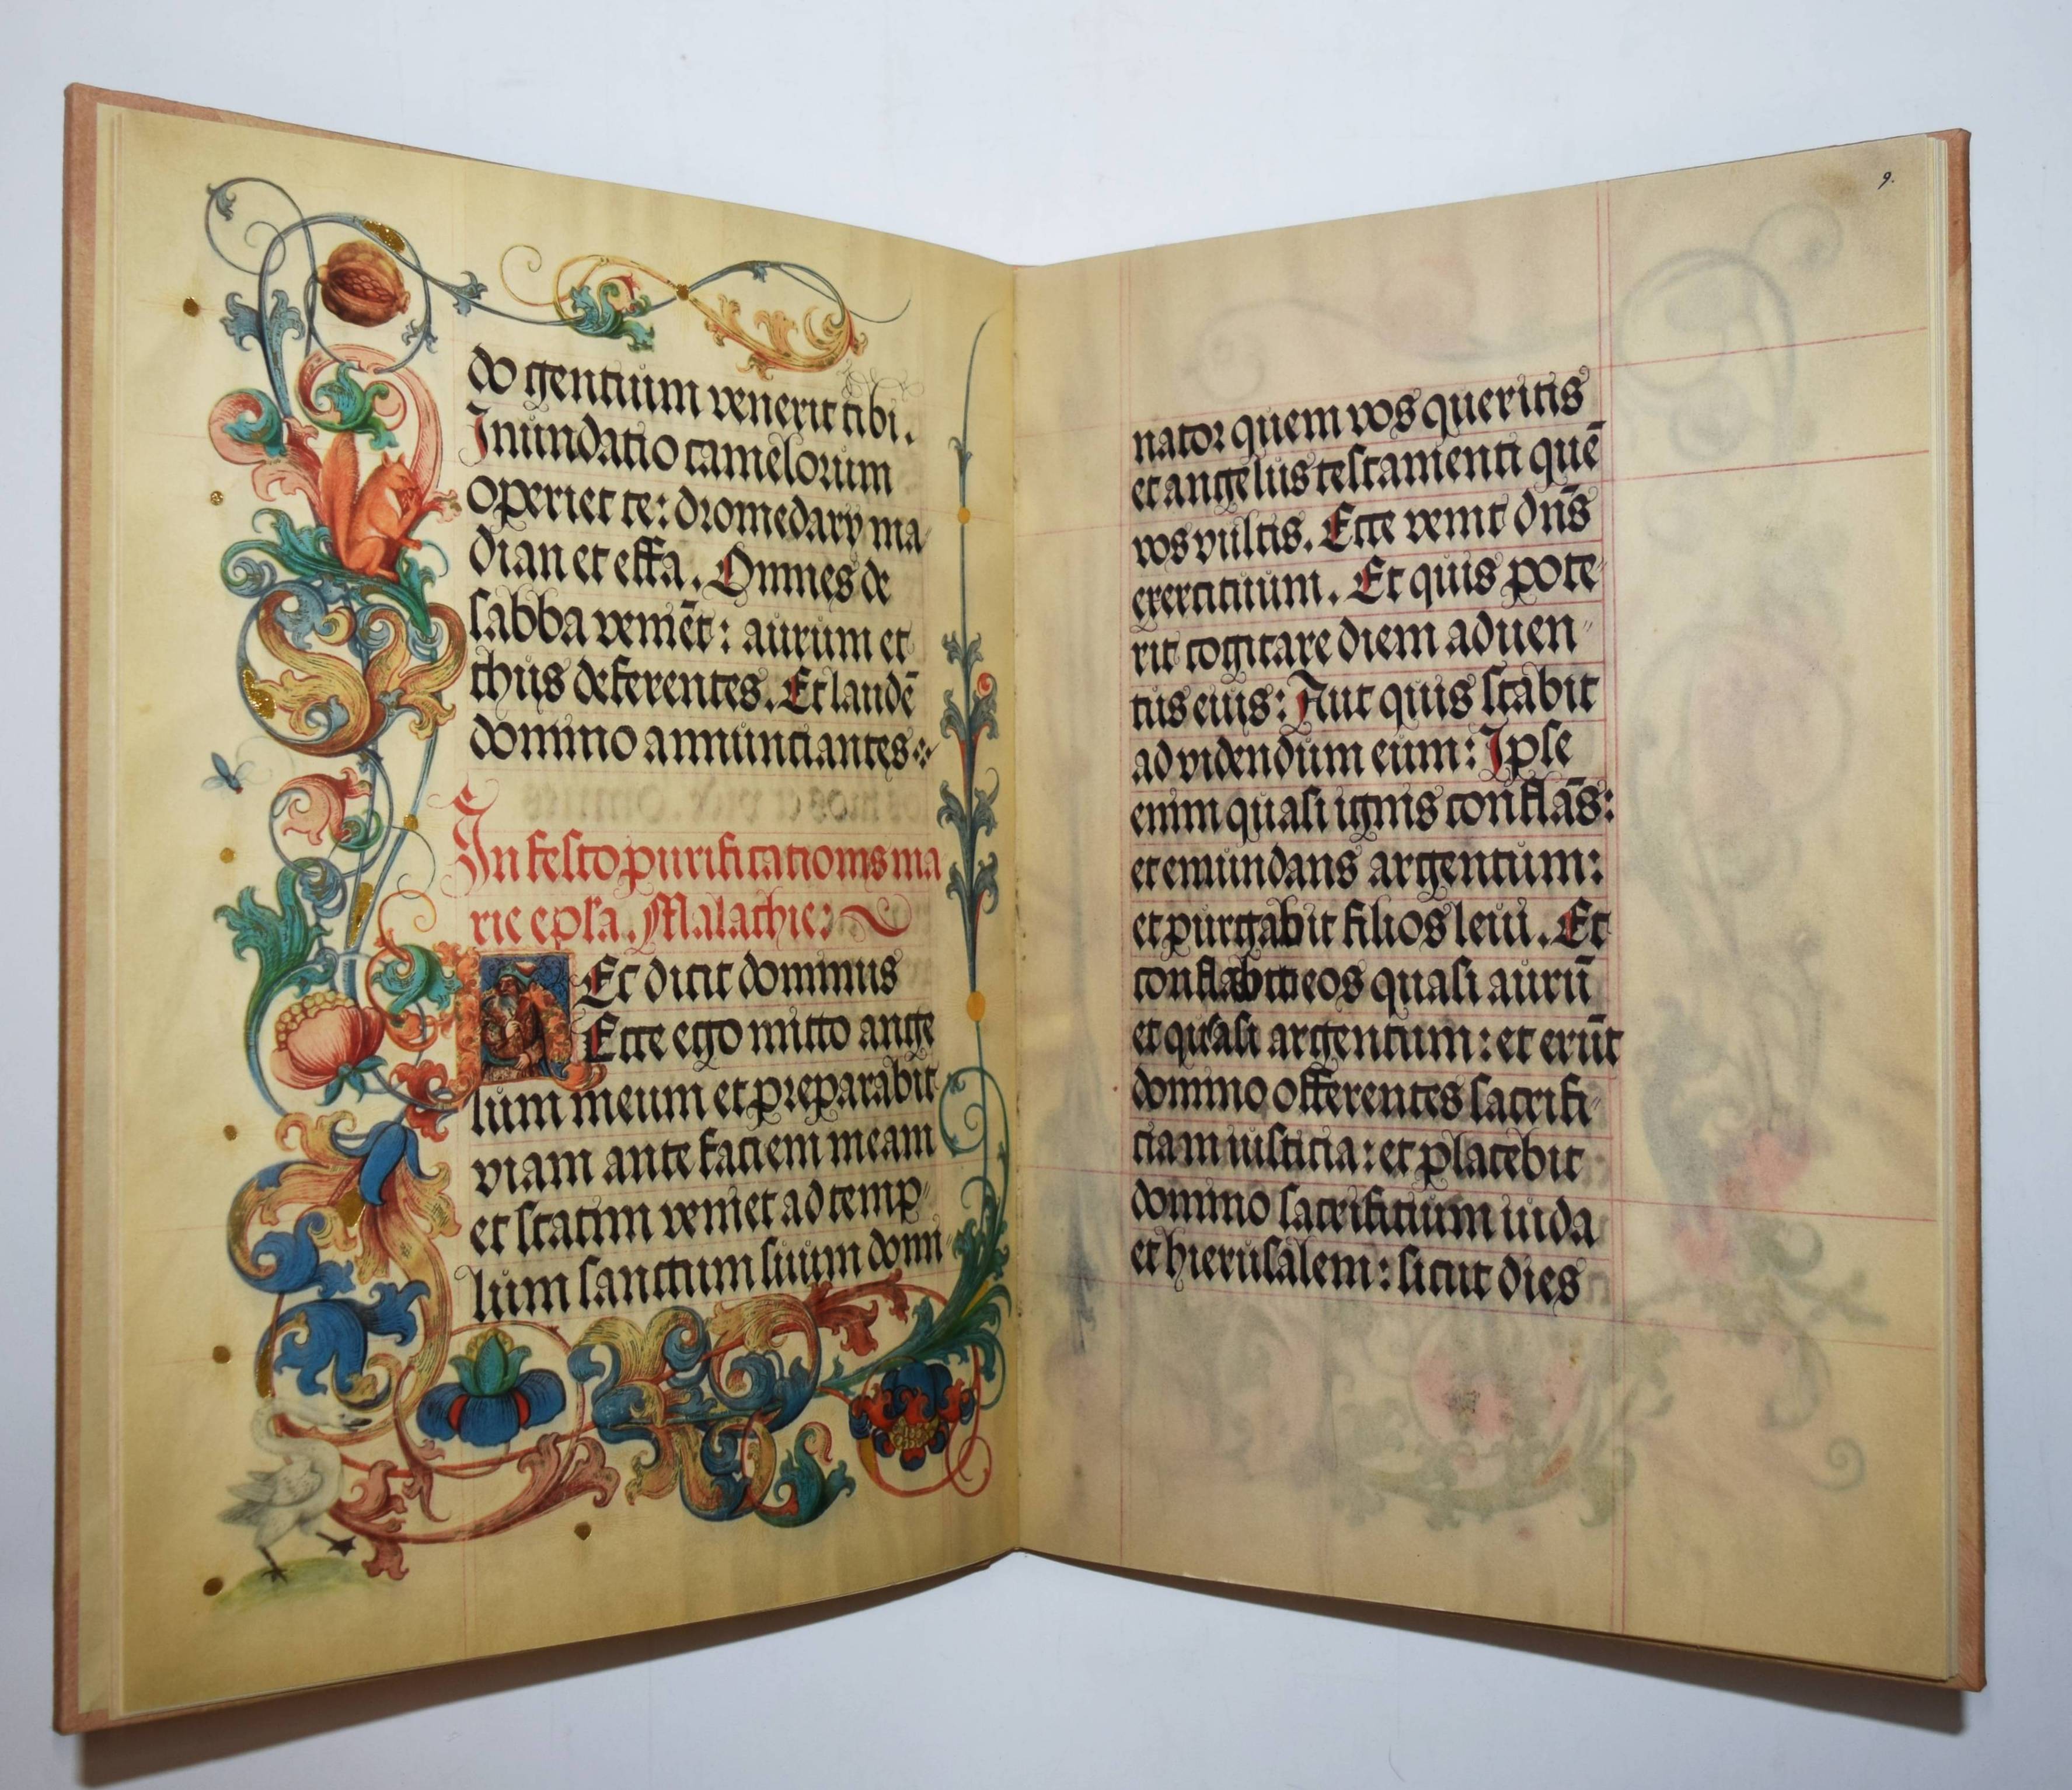 do gentium venerit tibi.
Inundatio camelorum
operiet te: dromedary ma
dian et effa. Omnes de
sabba veniēt: aurum et
thus deferentes. Et laudē
domino annunciantes
In festo purificationis ma
rie epła. Malachie:
Ec dicit dominus
Ecce ego mitto ange
lum meum et preparabit
viam ante faciem meam
et statim veniet ad temp
lum sanctum suum domi
9.
nator quem vos queritis
et angelus testamenti quē
vos vultis. Ecce venit dn̄s
exercituum. Et quis pote
rit cogitare diem aduen
tus eius: Aut quis stabit
ad videndum eum: Ipse
enim quasi ignis conflās:
et emundans argentum:
et purgabit filios leui. Et
conflabit eos quasi aurū
et quasi argentum: et erūt
domino offerentes sacrifi
ciam iusticia: et placebit
domino sacrificium iuda
et hierusalem: sicut dies